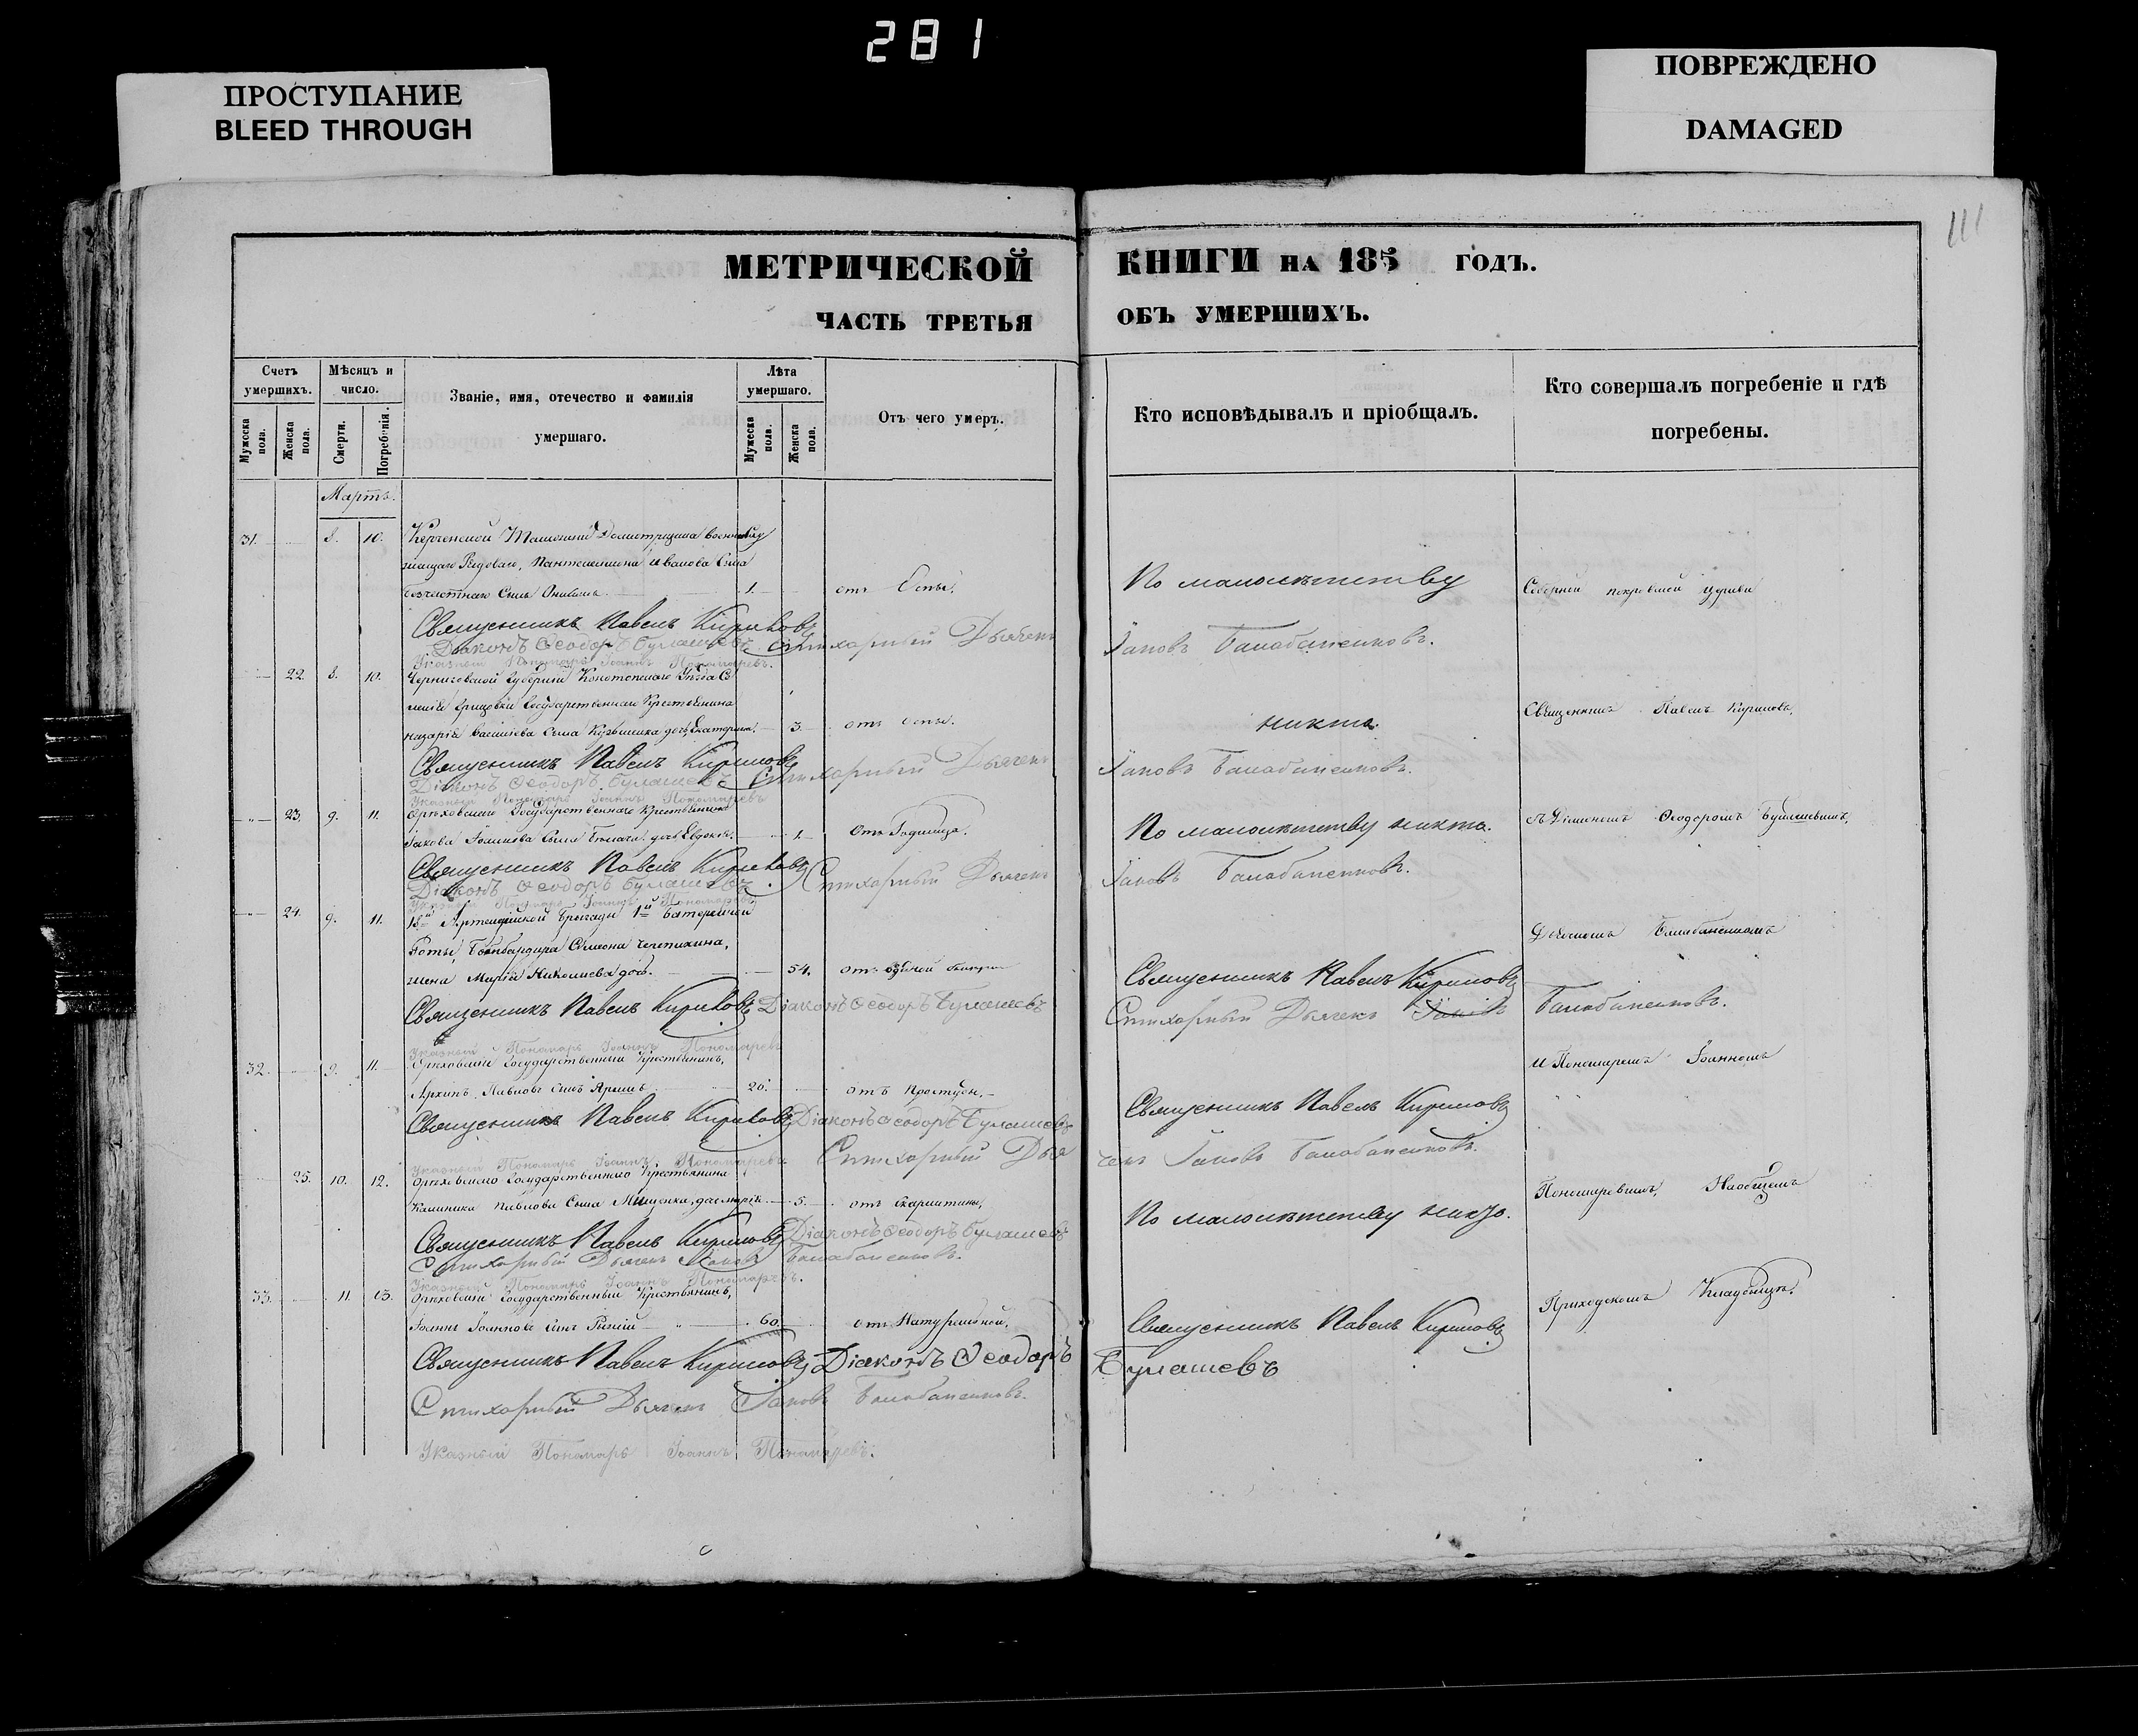 281
ПРОСТУПАНИЕ
BLEED THROUGH
ПОВРЕЖДЕНО
DAMAGED
111
МЕТРИЧЕСКОЙ КНИГИ НА 185 ГОДЪ.
ЧАСТЬ ТРЕТЬЯ ОБЪ УМЕРШИХЪ.
Счетъ умершихъ.
Мужеска пола.
Женска пола.
Мѣсяцъ и число.
Смерти.
Погребенія.
Званіе, имя, отечество и фамилія умершаго.
Лѣта умершаго.
Мужеска пола.
Женска пола.
Отъ чего умеръ.
Кто исповѣдывалъ и пріобщалъ.
Кто совершалъ погребеніе и гдѣ погребены.
Мартъ.
31. 8. 10. Керченской
Рядоваго, Пантелеимона Иванова Сына
Сынъ 1. отъ Оспы. По малолѣтству
Соборной Покровской церкви
Священникъ Павелъ Кириловъ
Діаконъ Ѳеодоръ Булашевъ Стихарный Дьячекъ Іаковъ Балабаненковъ.
Указный Пономарь Іоаннъ Пономаревъ.
22. 8. 10. Черниговской Губерніи Конотопскаго Уѣзда
Государственнаго Крестьянина
Назарія Василіева Сына дочь Екатерина. 3. отъ Оспы. никто.
Священникъ Павелъ Кириловъ
Священникъ Павелъ Кириловъ
Діаконъ Ѳеодоръ Булашевъ Стихарный Дьячекъ Іаковъ Балабаненковъ.
Указный Пономарь Іоаннъ Пономаревъ
23. 9. 11. Орѣховскаго Государственнаго Крестьянина
Іакова Сына дочь Евдокія. 1. Отъ Родимца. По малолѣтству никто.
съ Діакономъ Ѳеодоромъ Булашевымъ,
Священникъ Павелъ Кириловъ
Діаконъ Ѳеодоръ Булашевъ. Стихарный Дьячекъ Іаковъ Балабаненковъ.
Указный Пономарь Іоаннъ Пономаревъ
24. 9. 11. Артилерійской Бригады 1й Батарейной
Роты, Бомбардира Симеона
жена Марія Николаева дочь. 54. отъ Священникъ Павелъ Кириловъ
Дьячкомъ Балабаненковымъ
Священникъ Павелъ Кириловъ Діаконъ Ѳеодоръ Булашевъ Стихарный Дьячекъ Іаковъ Балабаненковъ.
Указный Пономарь Іоаннъ Пономаревъ
32. 9. 11. Орѣховскій Государственный Крестьянинъ,
Архипъ Павловъ Сынъ 20. отъ Простуды. Священникъ Павелъ Кириловъ
и Пономаремъ Іоанномъ
Священникъ Павелъ Кириловъ Діаконъ Ѳеодоръ Булашевъ
Стихарный Дьячекъ Іаковъ Балабаненковъ.
Указный Пономарь Іоаннъ Пономаревъ
25. 10. 12. Орѣховскаго Государственнаго Крестьянина
Калиника Павлова Сына Мищенка, дочь Марія 5. отъ Скарлатины, По малолѣтству никто.
Пономаревымъ, Наобщемъ
Священникъ Павелъ Кириловъ Діаконъ Ѳеодоръ Булашевъ
Стихарный Дьячекъ Іаковъ Балабаненковъ.
Указный Пономарь Іоаннъ Пономаревъ.
33. 11 13. Орѣховскій Государственный Крестьянинъ,
Іоаннъ Іоанновъ Сынъ 60. отъ Натуральной, Священникъ Павелъ Кириловъ
Приходскомъ Кладбищѣ.
Священникъ Павелъ Кириловъ Діаконъ Ѳеодоръ Булашевъ
Стихарный Дьячекъ Іаковъ Балабаненковъ.
Указный Пономарь Іоаннъ Пономаревъ.